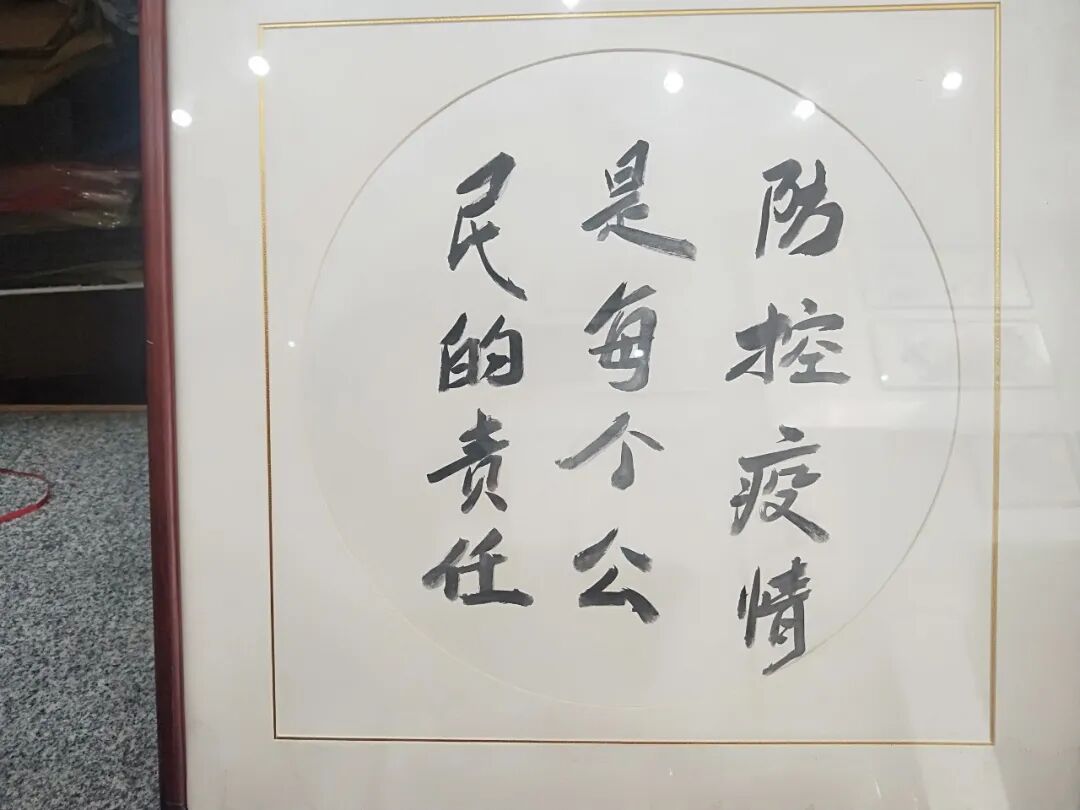 防控疫情
是每个公
民的责任